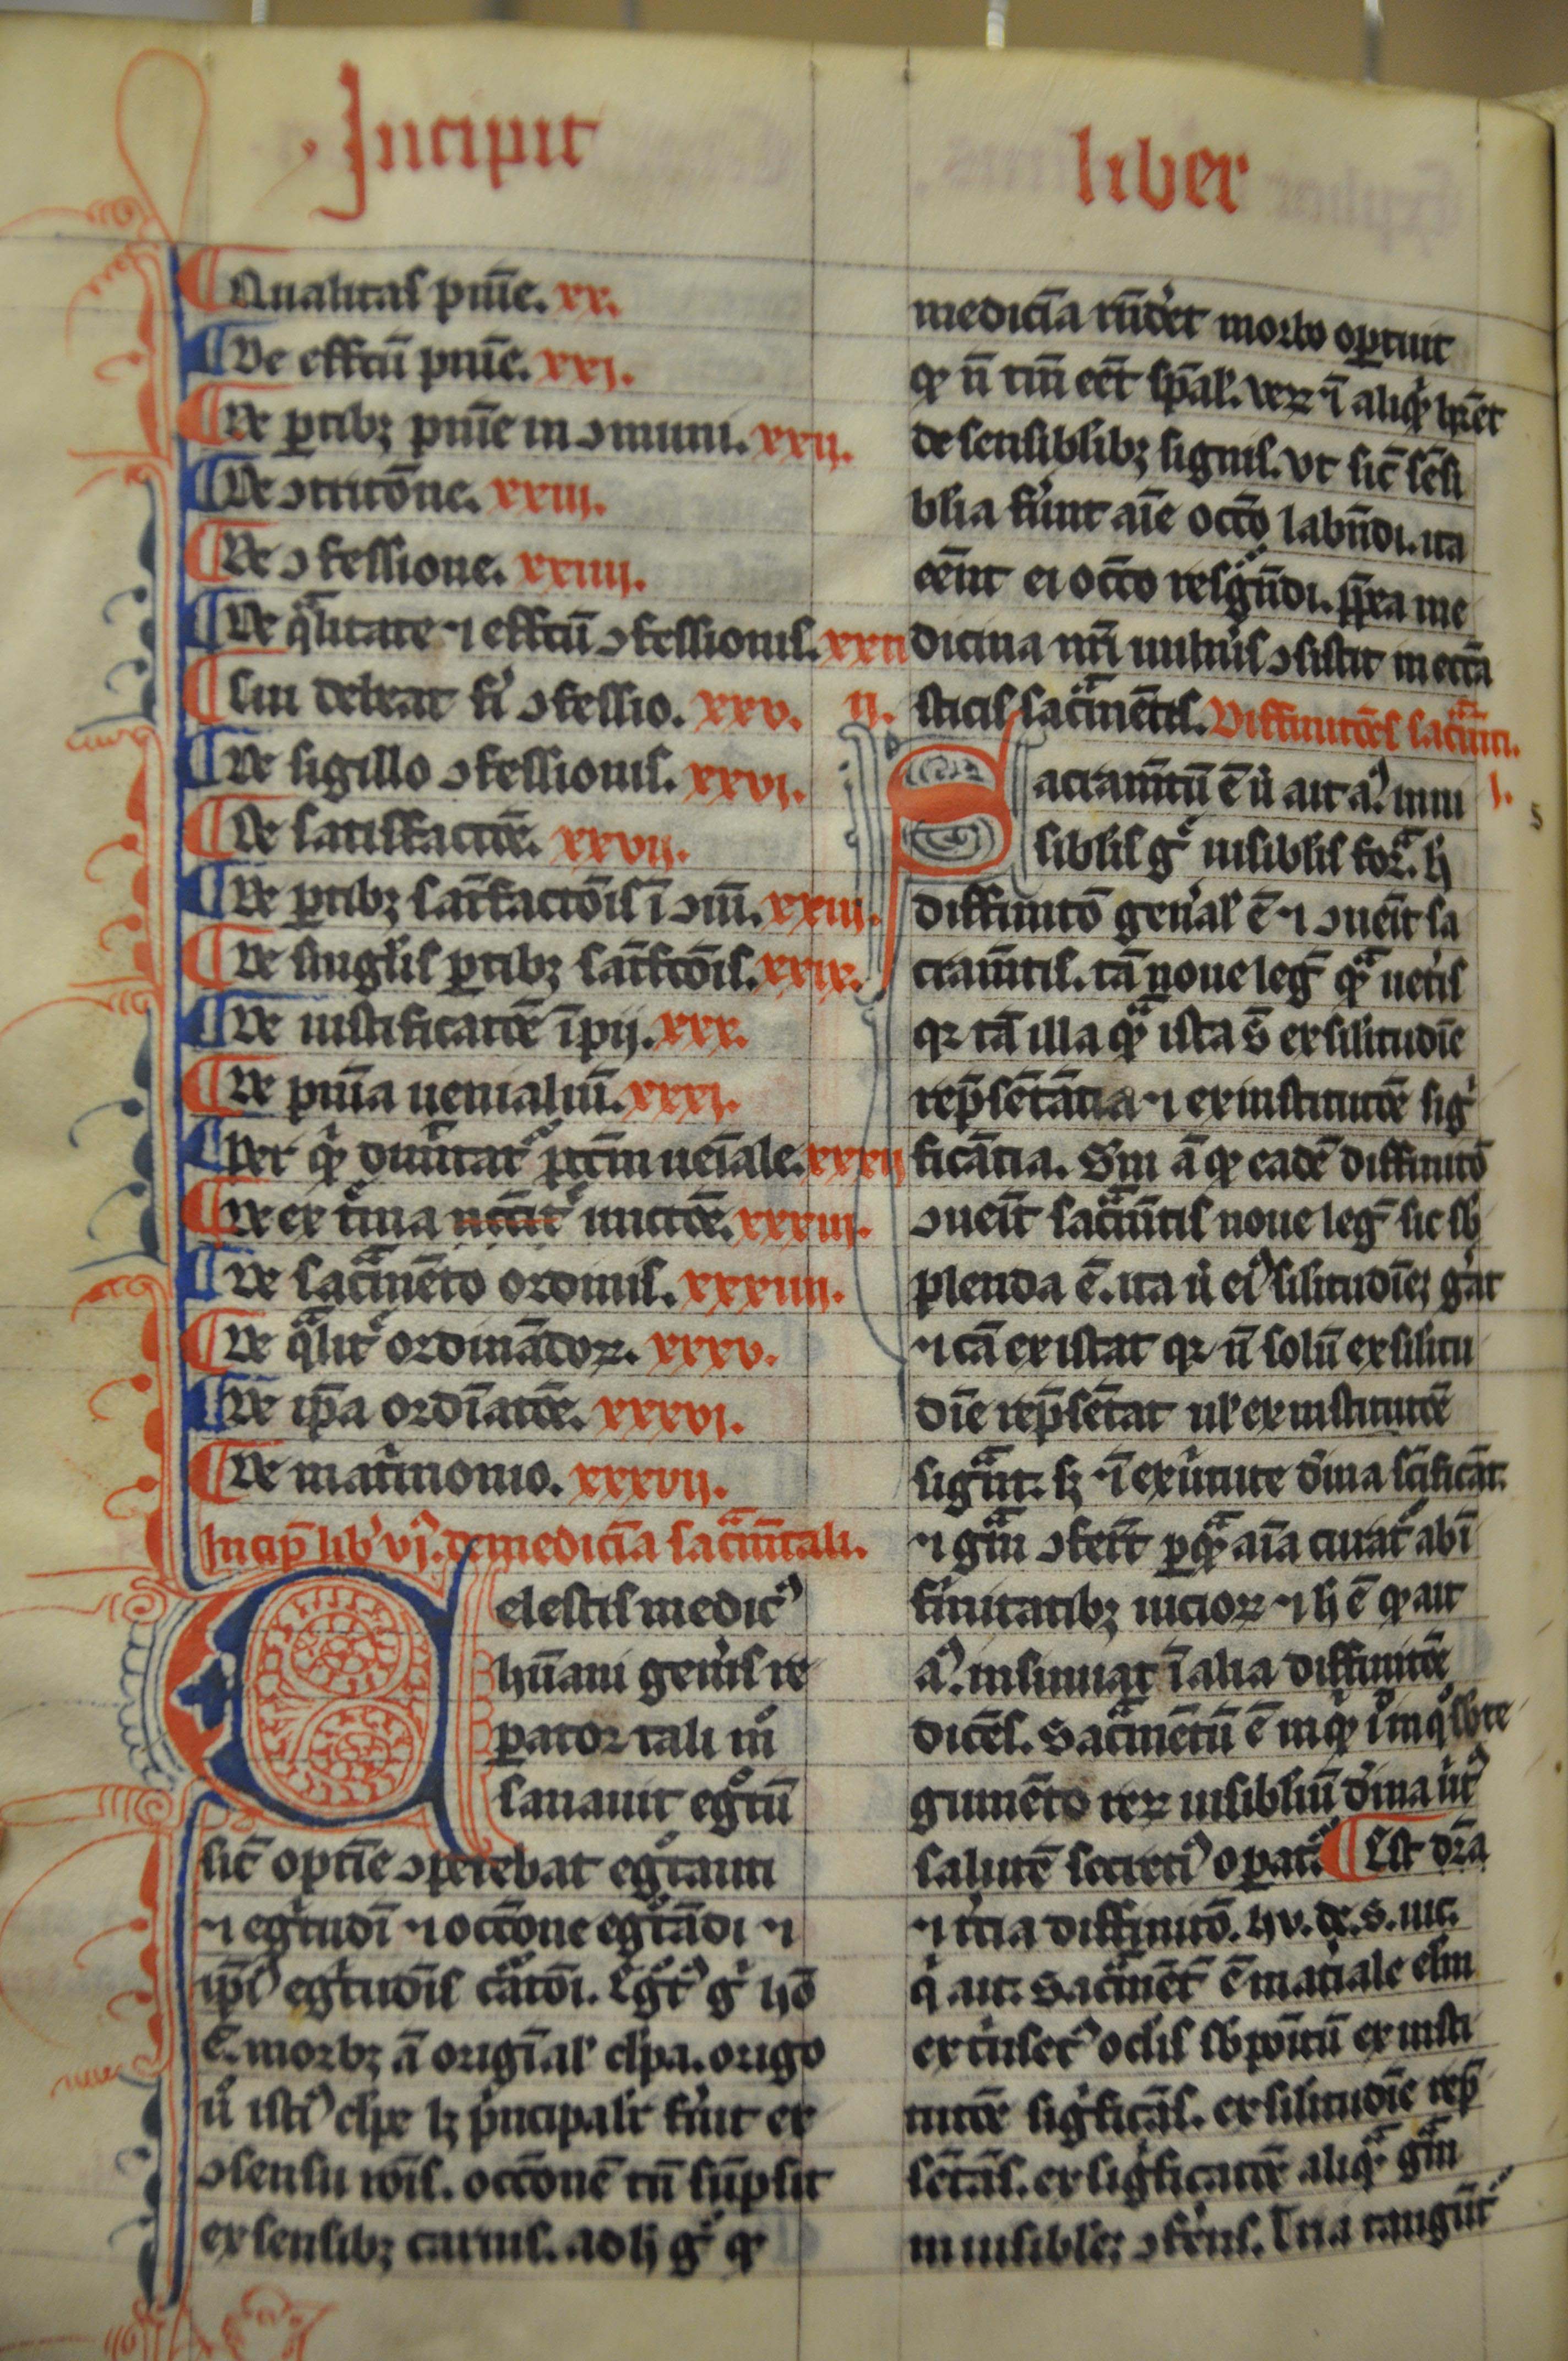 Incipit
liber
Qualitas pnīe. xx.
De effctū pnīe. xxi.
De ptibꝫ pnīe in ꝯmuni. xxii.
De ꝯtritōne. xxiii.
De ꝯfessione. xxiiii.
De qͣlitate ⁊ effctū ꝯfessionis. xxii
cui debeat fi ꝯfessio. xxv.
De sigillo ꝯfessionis. xxvi.
De satisfactōe. xxvii.
De ptibꝫ satīsfactōis ī ꝯmi. xxviii.
De singlis ptibꝫ satīsfctōis. xxix.
De iustificatōe īpij. xxx.
De pnīa uenialiū. xxxi.
Per qͦ dimittat᷑ pctm ueīale. xxxii
De extͥma unctōe. xxxiii.
De sacͣmēto ordinis. xxxiiii.
De qͣlit᷑ ordinādoꝝ. xxxv.
De ip̄a ordīatōe. xxxvi.
De matͥmonio. xxxvii.
Incip̄ lib᷑ vi. de medicīa sacͣmtali.
Celestis medicꝰ
hūani geñis re
parator tali mͦ
sanauit egͦtū
sic̄ optīe ꝯpetebat egͦtanti
⁊ egͥtudī ⁊ occōne egͦtādi ⁊
ip̄iꝰ egͥtudīs cātōi. Egͦtꝰ gͦ hō
ē. morbꝫ ā origīal᷑ clpa. origo
ū᷑ istiꝰ clpe lꝫ pͥncipalit᷑ fūit ex
ꝯsensu rōīs. occōnē tn̄ sūpsit
ex sensibꝫ carnis. ad h̄ gͦ qͩ
medicīa rn̄det morbo optuit
qͩ n̄ tm̄ eēt sp̄al᷑. veꝝ ⁊ī aliqͩ hr̄et
de sensiblibꝫ signis. vt sic̄ sēsi
blia fūunt aīe occō labn̄di. ita
eēnt ei occō resgͦn̄di. pp̄ea me
dicina nr̄i uuln̄is ꝯsistit in eccīa
ii. sticis sacͣmētis. Diffinitōes sacͣmti.
i.
Sacramn̄tū ē ū᷑ ait aꝰ. inui
siblis gͤ uisiblis forͣ. h̄
diffinitō gen̄al᷑ ē ⁊ ꝯuenīt sa
cramn̄tis. tā noue leg᷑ qͣ uet̄is
qꝛ tā illa qͣ ista s̄ ex silitudīe
rep̄sētātia ⁊ ex institutōe sigͥ
ficātia. Sm̄ ā qͩ eadē diffinitō
ꝯuenīt sacͣmn̄tis noue leg᷑ sic sb
plenda ē. ita ū᷑ eiꝰ silitudīeꝫ gͤat
⁊ cā existat qꝛ n̄ solū ex silitu
dīe rep̄sētat uł ex institutōe
signͣt. sꝫ ⁊ī ex uͥtute dͥuīa scīficāt.
⁊ gͣm ꝯferīt p qͣ aīa curat᷑ ab ī
firmitatibꝫ uicioꝝ ⁊ h̄ ē qͩ ait
aꝰ. insinuat ī alia diffinitōe
dicēs. Sacͣmētū ē in qͦ sb te
gumēto reꝝ uisibliū dͥuīa uͥtꝰ
salutē secretiꝰ opat᷑. Est dr̄a
⁊ tͥcia diffinitō. hv. de. s. uic.
qͥ ait. Sacͣmēt᷑ ē mat̄iale elm̄
extͥnsecꝰ oclis sb poītū ex insti
tutōe sigͥficās. ex silitudīe rep̄
sētās. ex sigͥficatōe aliqͣ gͣm
inuisibleꝫ ꝯferēs. Una tangūt᷑